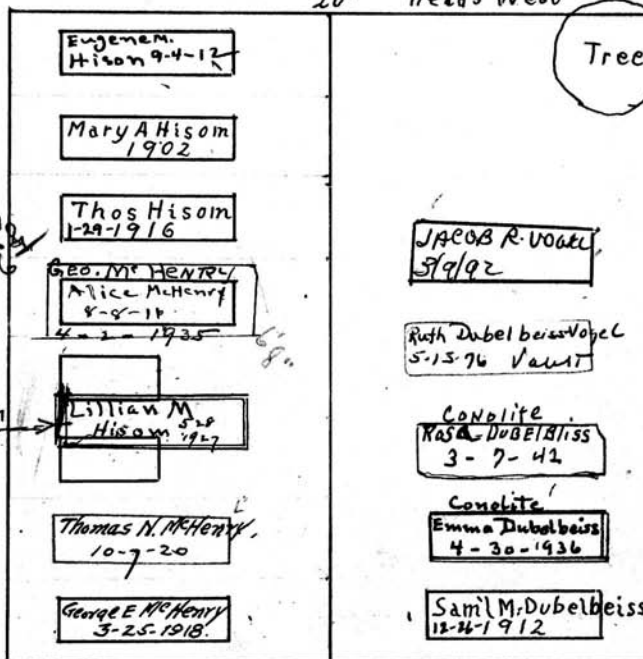 20 Heads West
Eugene M.
Hison 9-4-12
Mary A Hisom
1902
Thos Hisom
1-29-1916
GEO. Mc HENRY
Alice McHenry
8-8-11
4-2-1935
Lillian M
Hisom 5-28
1927
Thomas N. McHenry.
10-7-20
George E McHenry
3-25-1918.
Tree
JACOB R. VOGEL
5/9/92
Ruth Dubelbeiss Vogel
5-15-76 Vault
Conolite
Rosa DUBELBliss
3-7-42
Conolite
Emma Dubelbeiss
4-30-1936
Sam'l M. Dubelbeiss
12-26-1912